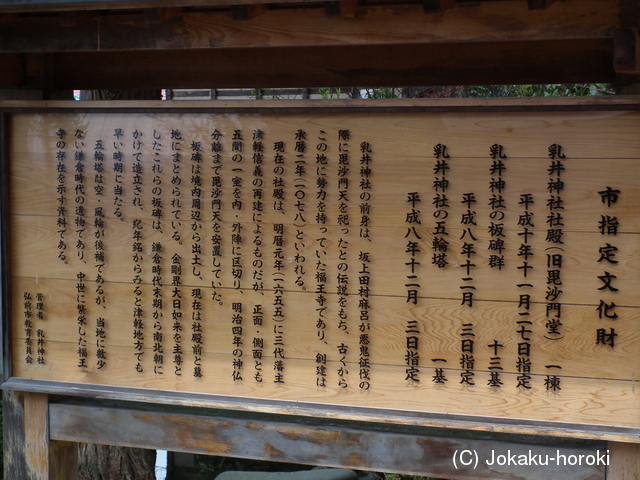 市指定文化財
乳井神社社殿(旧毘沙門堂) 一棟
平成十年十一月二七日指定
乳井神社の板碑群 十三基
平成八年十二月 三日指定
乳井神社の五輪塔 一基
平成八年十二月 三日指定
乳井神社の前身は、坂上田村麻呂が悪鬼征伐の
際に毘沙門天を祀ったとの伝説をもち、古くから
この地に勢力を持っていた福王寺であり、創建は
承暦二年(一〇七八)といわれる。
現在の社殿は、明暦元年(一六五五)に三代藩主
津軽信義の再建によるものだが、正面・側面とも
五間の一室を内・外陣に区切り、明治四年の神仏
分離まで毘沙門天を安置していた。
板碑は境内周辺から出土し、現在は社殿前と墓
地にまとめられている。金剛界大日如来を主尊と
したこれらの板碑は、鎌倉時代末期から南北朝に
かけて造立され、紀年銘からみると津軽地方でも
早い時期に当たる。
五輪塔は空・風輪が後補であるが、当地に数少
ない鎌倉時代の遺物であり、中世に繁栄した福王
寺の存在を示す資料である。
管理者 乳井神社
弘前市教育委員会
(C) Jokaku-horoki
Jokaku-horoki